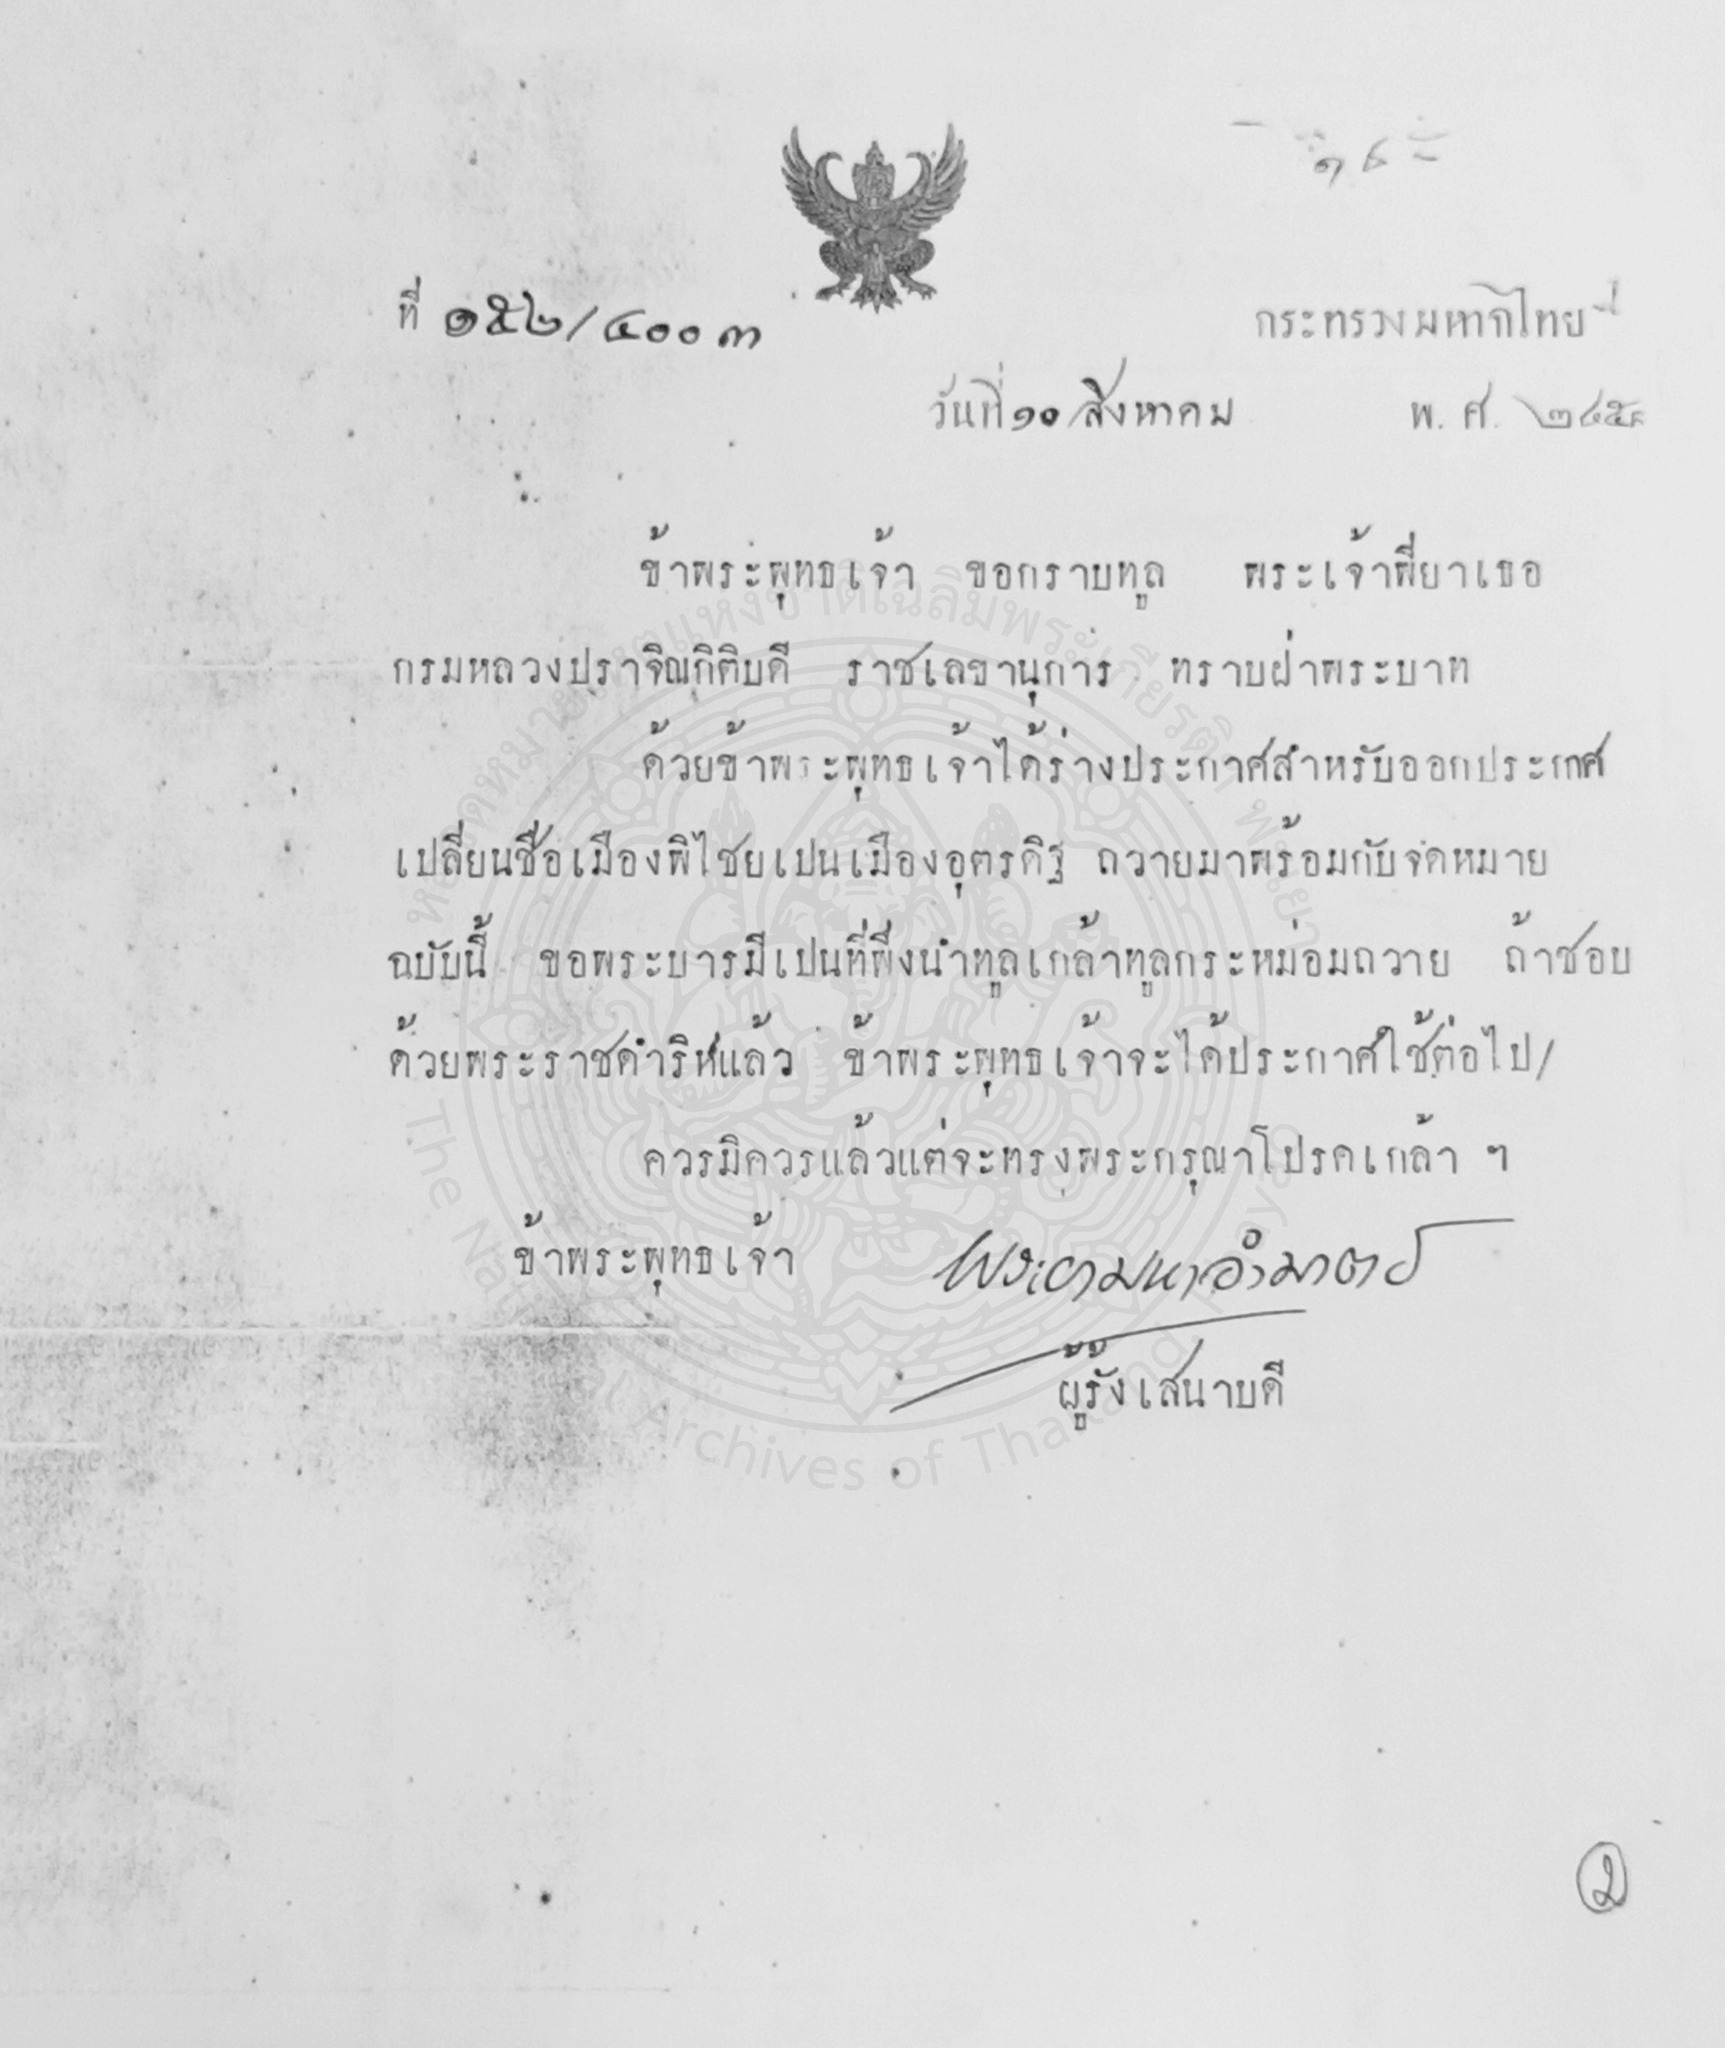 ที่ ๑๕๒/๔๐๐๓
กระทรวงมหาดไทย
วันที่ ๑๐ สิงหาคม พ. ศ. ๒๔๕๘
ข้าพระพุทธเจ้า ขอกราบทูล พระเจ้าพี่ยาเธอ
กรมหลวงปราจิณกิติบดี ราชเลขานุการ ทราบฝ่าพระบาท
ด้วยข้าพระพุทธเจ้าได้ร่างประกาศสำหรับออกประกาศ
เปลี่ยนชื่อเมืองพิไชยเปนเมืองอุตรดิฐ ถวายมาพร้อมกับจดหมาย
ฉบับนี้ ขอพระบารมีเปนที่พึ่งนำทูลเกล้าทูลกระหม่อมถวาย ถ้าชอบ
ด้วยพระราชดำริห์แล้ว ข้าพระพุทธเจ้าจะได้ประกาศใช้ต่อไป/
ควรมิควรแล้วแต่จะทรงพระกรุณาโปรดเกล้า ฯ
ข้าพระพุทธเจ้า พระยามหาอำมาตย์
ผู้รั้งเสนาบดี
หอจดหมายเหตุแห่งชาติเฉลิมพระเกียรติฯ พะเยา
The National Archives of Thailand Phayao
๒